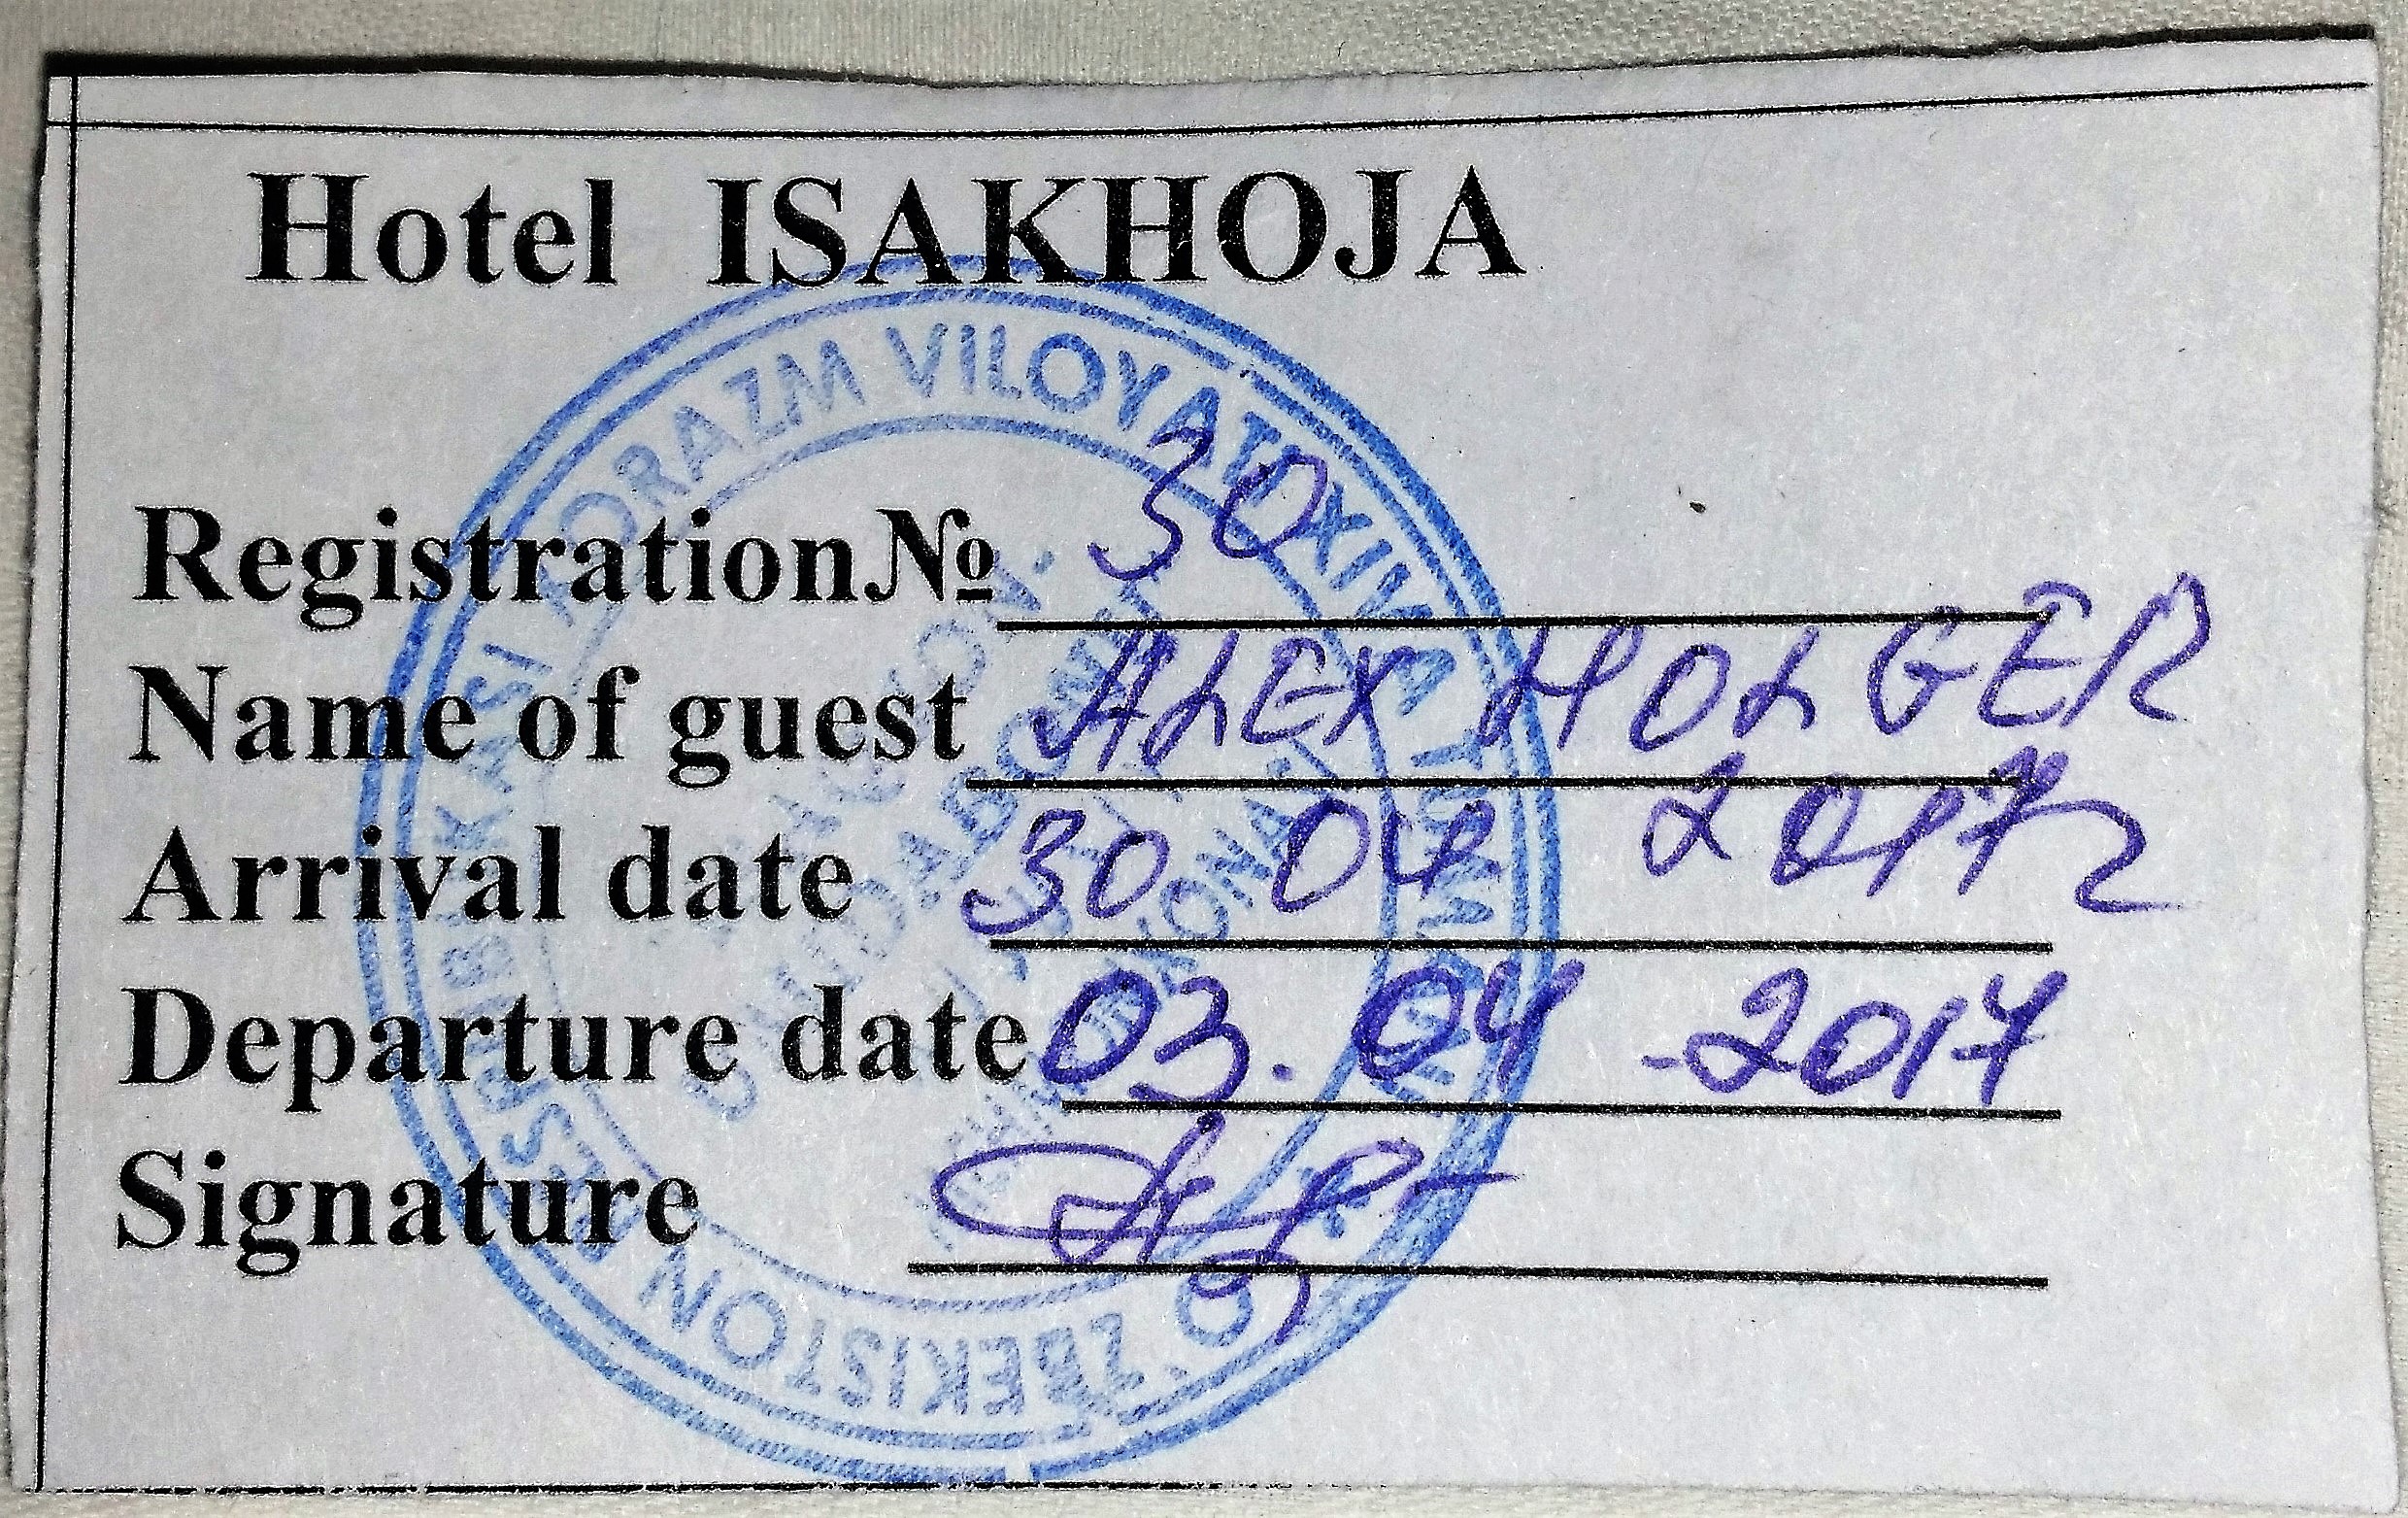 Hotel ISAKHOJA
Registration№ 30
Name of guest ALEX HOLGER
Arrival date 30. 04 2017
Departure date 03. 04 -2017
Signature
O'ZBEKISTON RESPUBLIKASI XORAZM VILOYATI XIVA